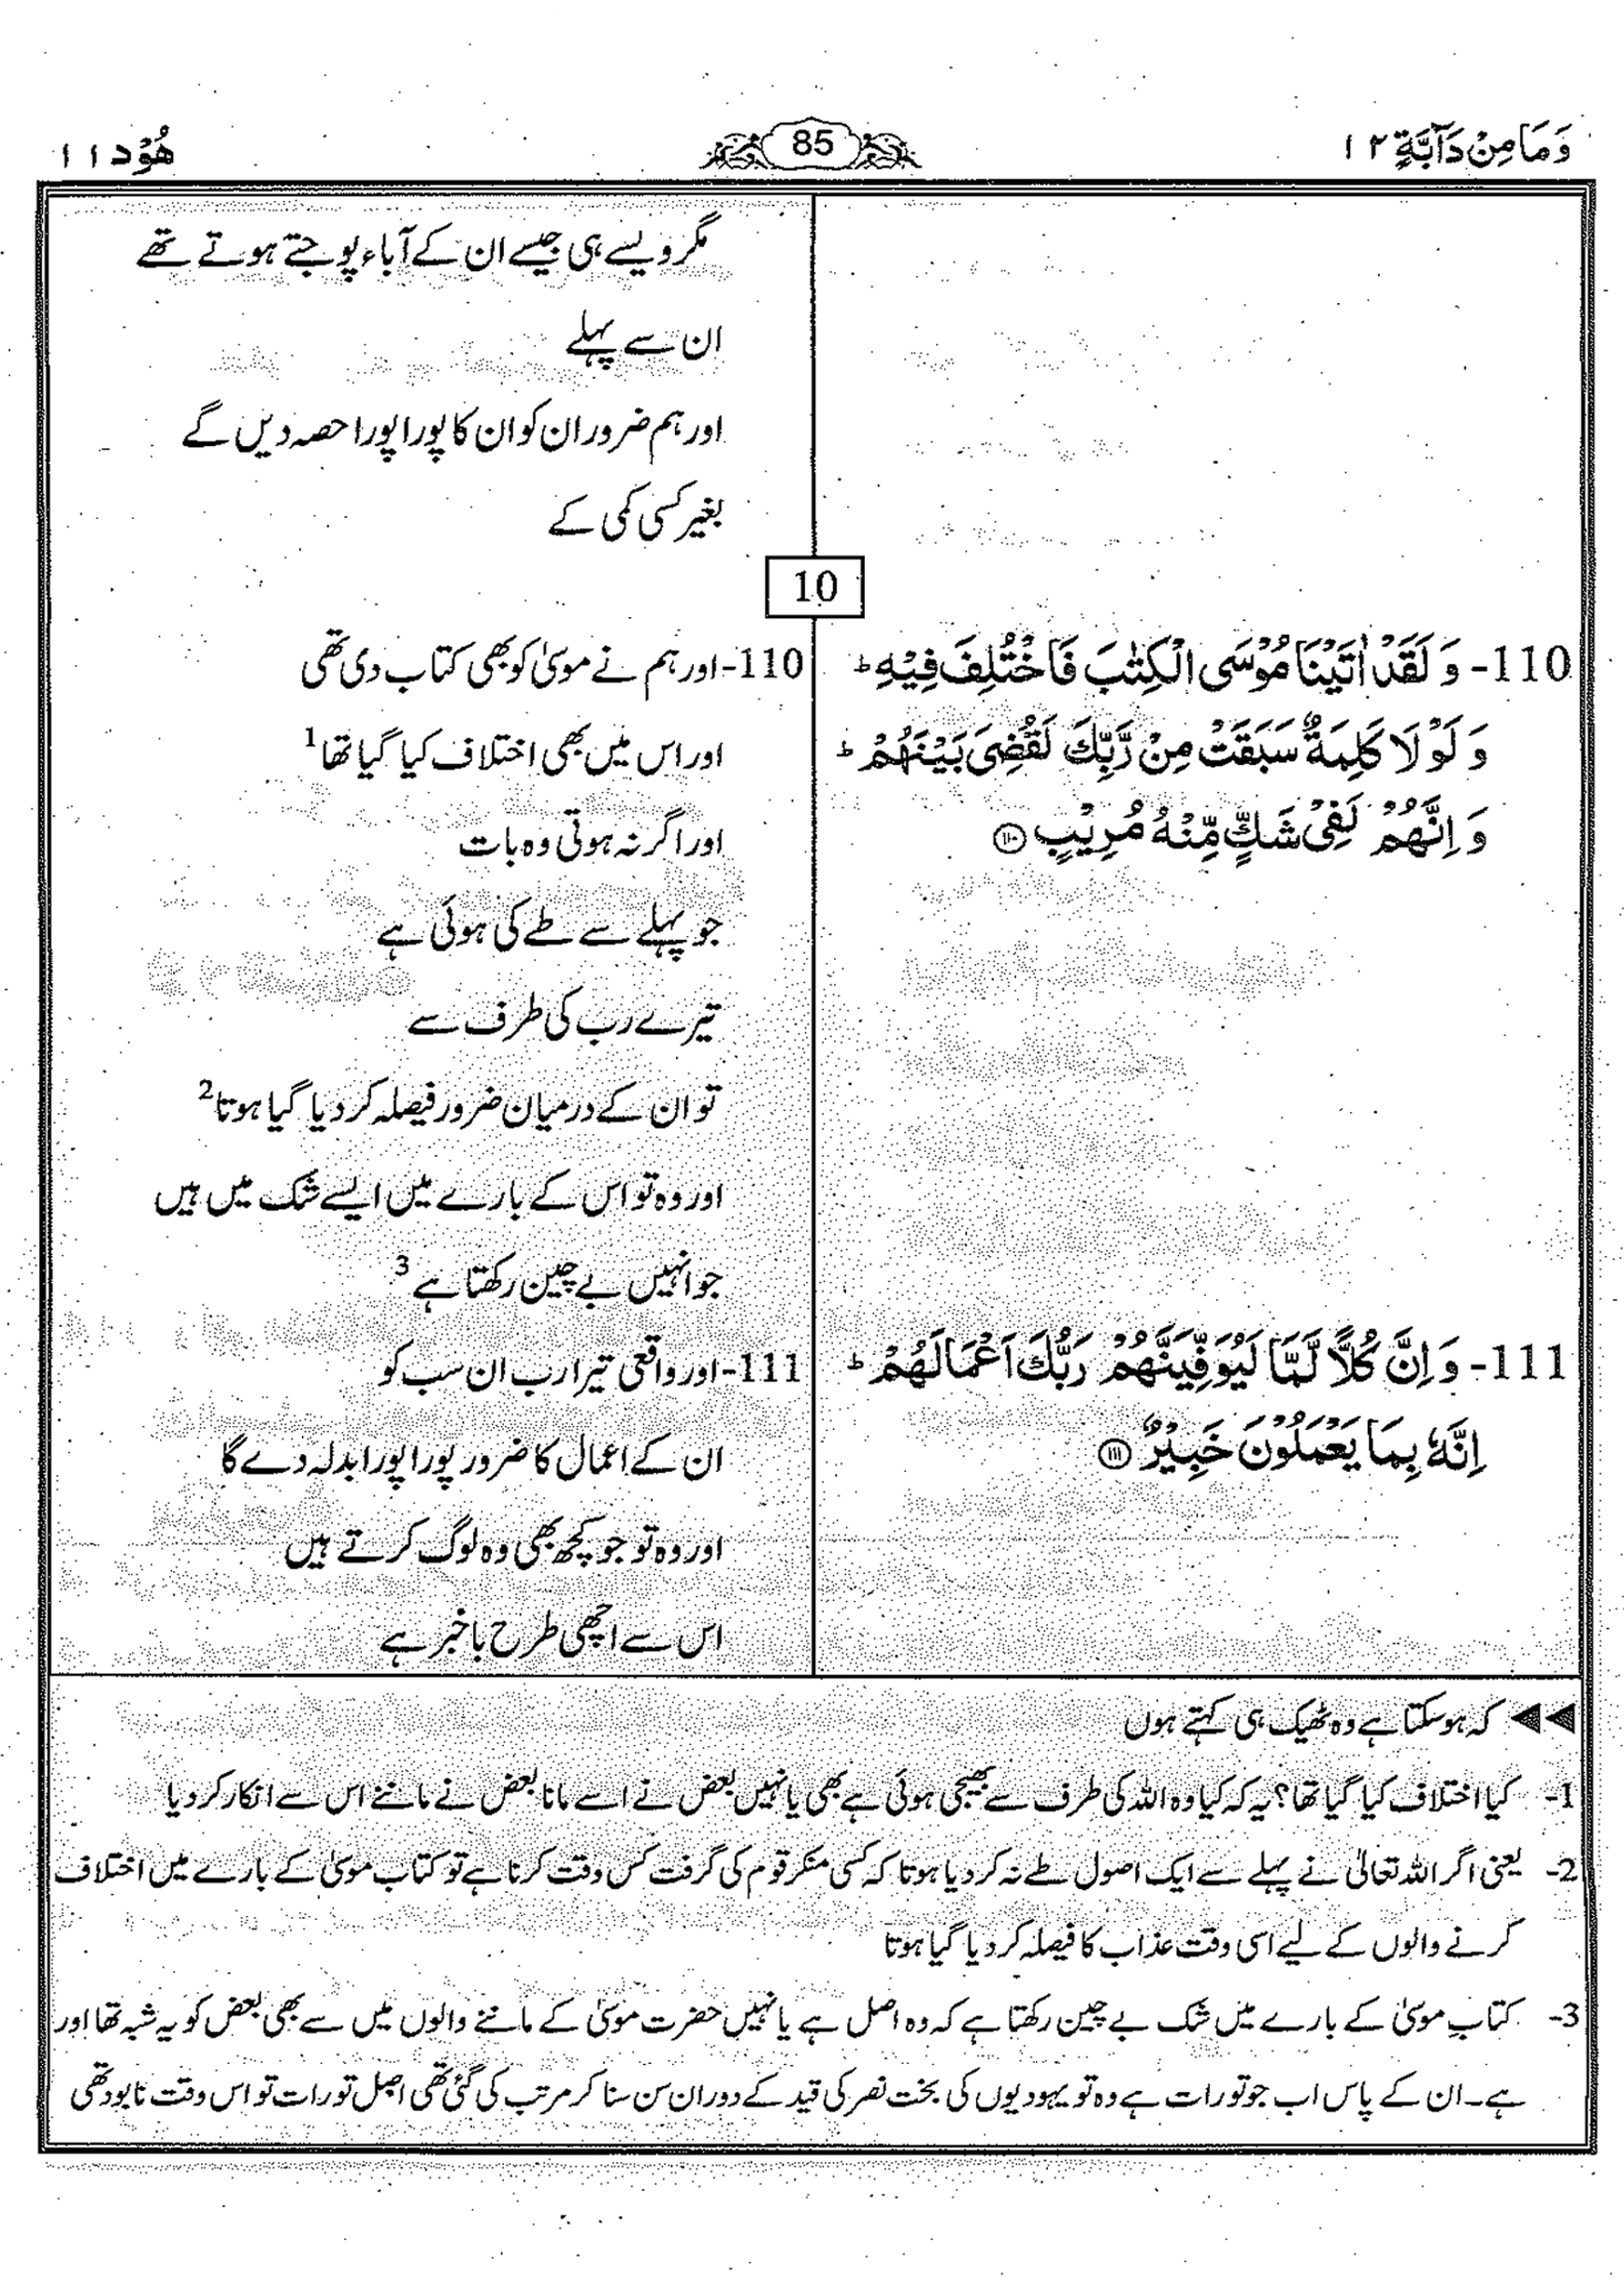 وَمَا مِنْ دَآبَّةٍ ۱۲
85
هُوْد ۱۱
مگر ویسے ہی جیسے ان کے آباء پوجتے ہوتے تھے
ان سے پہلے
اور ہم ضرور ان کو ان کا پورا پورا حصہ دیں گے
بغیر کسی کمی کے
10
110- وَ لَقَدْ اٰتَيْنَا مُوْسَى الْكِتٰبَ فَاخْتُلِفَ فِيْهِ ؕ
وَ لَوْ لَا كَلِمَةٌ سَبَقَتْ مِنْ رَّبِّكَ لَقُضِیَ بَيْنَهُمْ ؕ
وَ اِنَّهُمْ لَفِیْ شَكٍّ مِّنْهُ مُرِيْبٍ ۝۱۱۰
110- اور ہم نے موسیٰ کو بھی کتاب دی تھی
اور اس میں بھی اختلاف کیا گیا تھا 1
اور اگر نہ ہوتی وہ بات
جو پہلے سے طے کی ہوئی ہے
تیرے رب کی طرف سے
تو ان کے درمیان ضرور فیصلہ کر دیا گیا ہوتا 2
اور وہ تو اس کے بارے میں ایسے شک میں ہیں
جو انہیں بے چین رکھتا ہے 3
111- وَ اِنَّ كُلًّا لَّمَّا لَيُوَفِّيَنَّهُمْ رَبُّكَ اَعْمَالَهُمْ ؕ
اِنَّهٗ بِمَا يَعْمَلُوْنَ خَبِيْرٌ ۝۱۱۱
111- اور واقعی تیرا رب ان سب کو
ان کے اعمال کا ضرور پورا پورا بدلہ دے گا
اور وہ تو جو کچھ بھی وہ لوگ کرتے ہیں
اس سے اچھی طرح باخبر ہے
◀◀ کہ ہو سکتا ہے وہ ٹھیک ہی کہتے ہوں
1- کیا اختلاف کیا گیا تھا؟ یہ کہ کیا وہ اللہ کی طرف سے بھیجی ہوئی ہے بھی یا نہیں بعض نے اسے مانا بعض نے ماننے اس سے انکار کر دیا
2- یعنی اگر اللہ تعالیٰ نے پہلے سے ایک اصول طے نہ کر دیا ہوتا کہ کسی منکر قوم کی گرفت کس وقت کرنا ہے تو کتاب موسیٰ کے بارے میں اختلاف
کرنے والوں کے لیے اسی وقت عذاب کا فیصلہ کر دیا گیا ہوتا
3- کتابِ موسیٰ کے بارے میں شک بے چین رکھتا ہے کہ وہ اصل ہے یا نہیں حضرت موسیٰ کے ماننے والوں میں سے بھی بعض کو یہ شبہ تھا اور
ہے۔ ان کے پاس اب جو تورات ہے وہ تو یہودیوں کی بخت نصر کی قید کے دوران سن سنا کر مرتب کی گئی تھی اصل تورات تو اس وقت نابود تھی